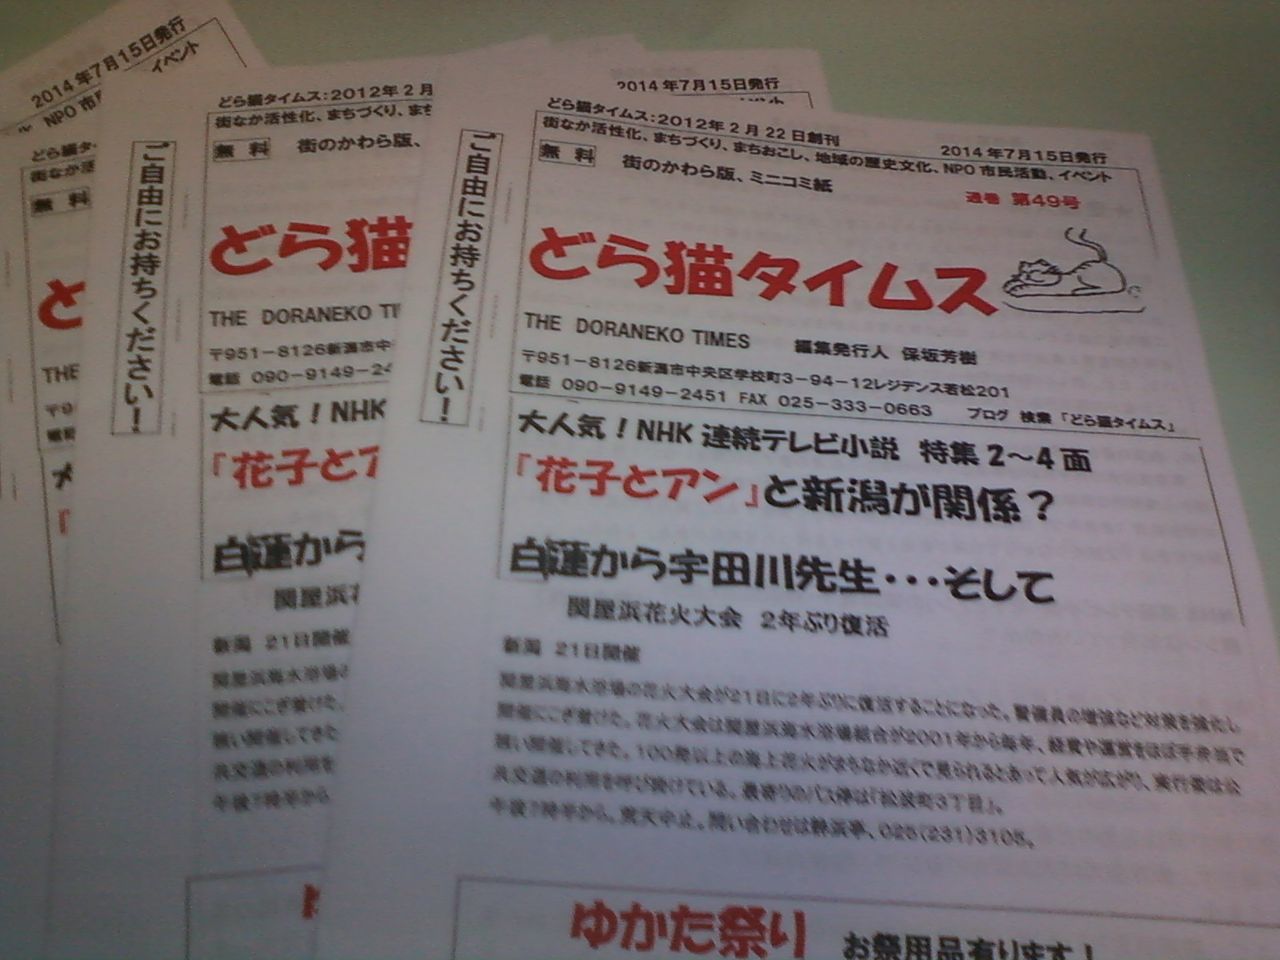 2014年7月15日発行
イベント
NPO 市民
どら猫タ
街なか活
無 料
ど
THE
〒9
電話
大
『
ご自由にお持ちください！
どら猫タイムス：2012年2月
街なか活性化、まちづくり、まち
無 料 街のかわら版、
どら猫
THE DORANEKO TI
〒951－8126新潟市中
電話 090－9149－24
大人気！NHK
『花子とア
白蓮から
関屋浜花
新潟 21日開催
関屋浜海水浴場の
開催にこぎ着けた。
午後7時半から
2014年7月15日発行
ご自由にお持ちください！
どら猫タイムス：2012年2月22日創刊 2014年7月15日発行
街なか活性化、まちづくり、まちおこし、地域の歴史文化、NPO 市民活動、イベント
無 料 街のかわら版、ミニコミ紙
通巻 第49号
どら猫タイムス
THE DORANEKO TIMES 編集発行人 保坂芳樹
〒951－8126新潟市中央区学校町3－94－12レジデンス若松201
電話 090－9149－2451 FAX 025－333－0663 ブログ 検索「どら猫タイムス」
大人気！NHK 連続テレビ小説 特集2～4面
『花子とアン』と新潟が関係？
白蓮から宇田川先生・・・そして
関屋浜花火大会 2年ぶり復活
新潟 21日開催
関屋浜海水浴場の花火大会が21日に2年ぶりに復活することになった。警備員の増強など対策を強化し
開催にこぎ着けた。花火大会は関屋浜海水浴場組合が2001年から毎年、経費や運営をほぼ手弁当で
開催してきた。100発以上の海上花火がまちなか近くで見られるとあって人気が広がり、実行委は公
共交通の利用を呼び掛けている。最寄りのバス停は「松波町3丁目」。
午後7時半から。荒天中止。問い合わせは静浜亭、025(231)3105。
ゆかた祭り お祭用品有ります！